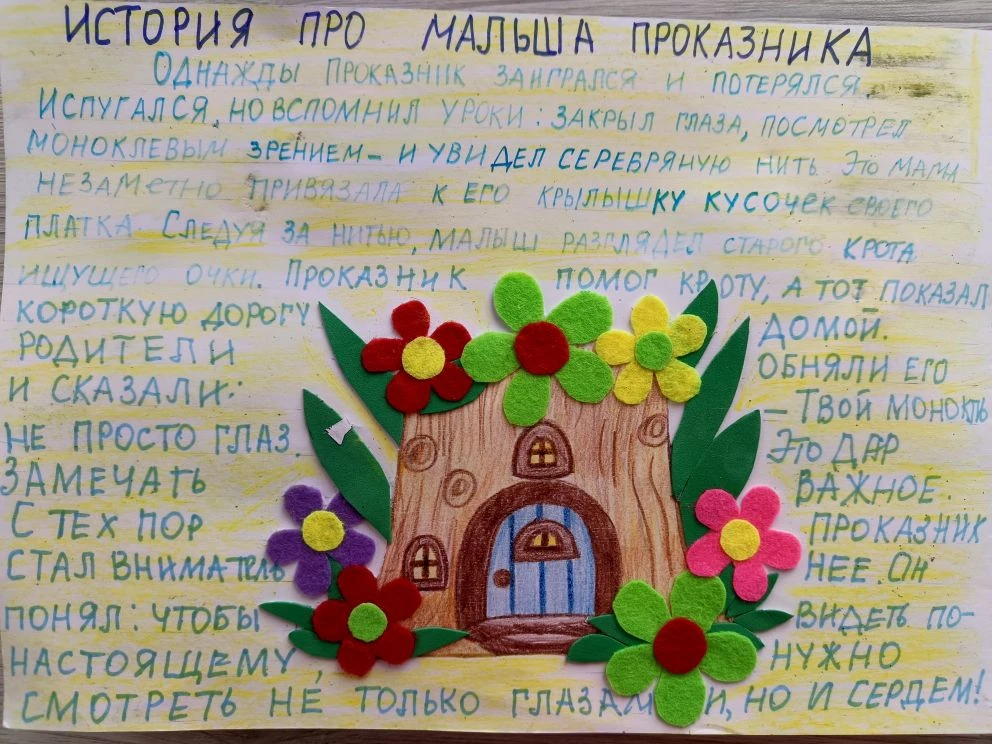 ИСТОРИЯ ПРО МАЛЫША ПРОКАЗНИКА
ОДНАЖДЫ ПРОКАЗНИК ЗАИГРАЛСЯ И ПОТЕРЯЛСЯ.
ИСПУГАЛСЯ, НО ВСПОМНИЛ УРОКИ: ЗАКРЫЛ ГЛАЗА, ПОСМОТРЕЛ
МОНОКЛЕВЫМ ЗРЕНИЕМ – И УВИДЕЛ СЕРЕБРЯНУЮ НИТЬ. ЭТО МАМА
НЕЗАМЕТНО ПРИВЯЗАЛА К ЕГО КРЫЛЫШКУ КУСОЧЕК СВОЕГО
ПЛАТКА. СЛЕДУЯ ЗА НИТЬЮ, МАЛЫШ РАЗГЛЯДЕЛ СТАРОГО КРОТА,
ИЩУЩЕГО ОЧКИ. ПРОКАЗНИК ПОМОГ КРОТУ, А ТОТ ПОКАЗАЛ
КОРОТКУЮ ДОРОГУ ДОМОЙ.
РОДИТЕЛИ ОБНЯЛИ ЕГО
И СКАЗАЛИ: – ТВОЙ МОНОКЛЬ
НЕ ПРОСТО ГЛАЗ. ЭТО ДАР
ЗАМЕЧАТЬ ВАЖНОЕ.
С ТЕХ ПОР ПРОКАЗНИК
СТАЛ ВНИМАТЕЛЬНЕЕ. ОН
ПОНЯЛ: ЧТОБЫ ВИДЕТЬ ПО-
НАСТОЯЩЕМУ, НУЖНО
СМОТРЕТЬ НЕ ТОЛЬКО ГЛАЗАМИ, НО И СЕРДЕМ!